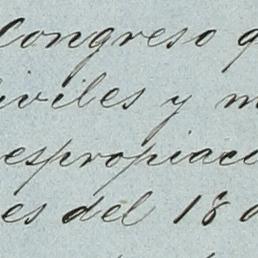 Congreso q
iviles y m
espropiac
es del 18 d